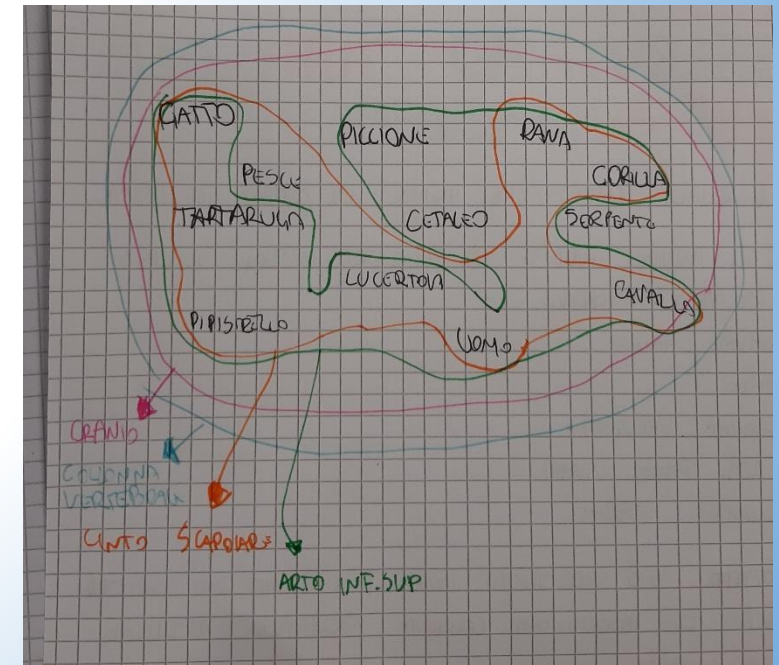 GATTO
PICCIONE
RANA
PESCE
GORILLA
TARTARUGA
CETACEO
SERPENTE
LUCERTOLA
CAVALLO
PIPISTRELLO
UOMO
CRANIO
COLONNA
VERTEBRALE
CINTO SCAPOLARE
ARTO INF.SUP